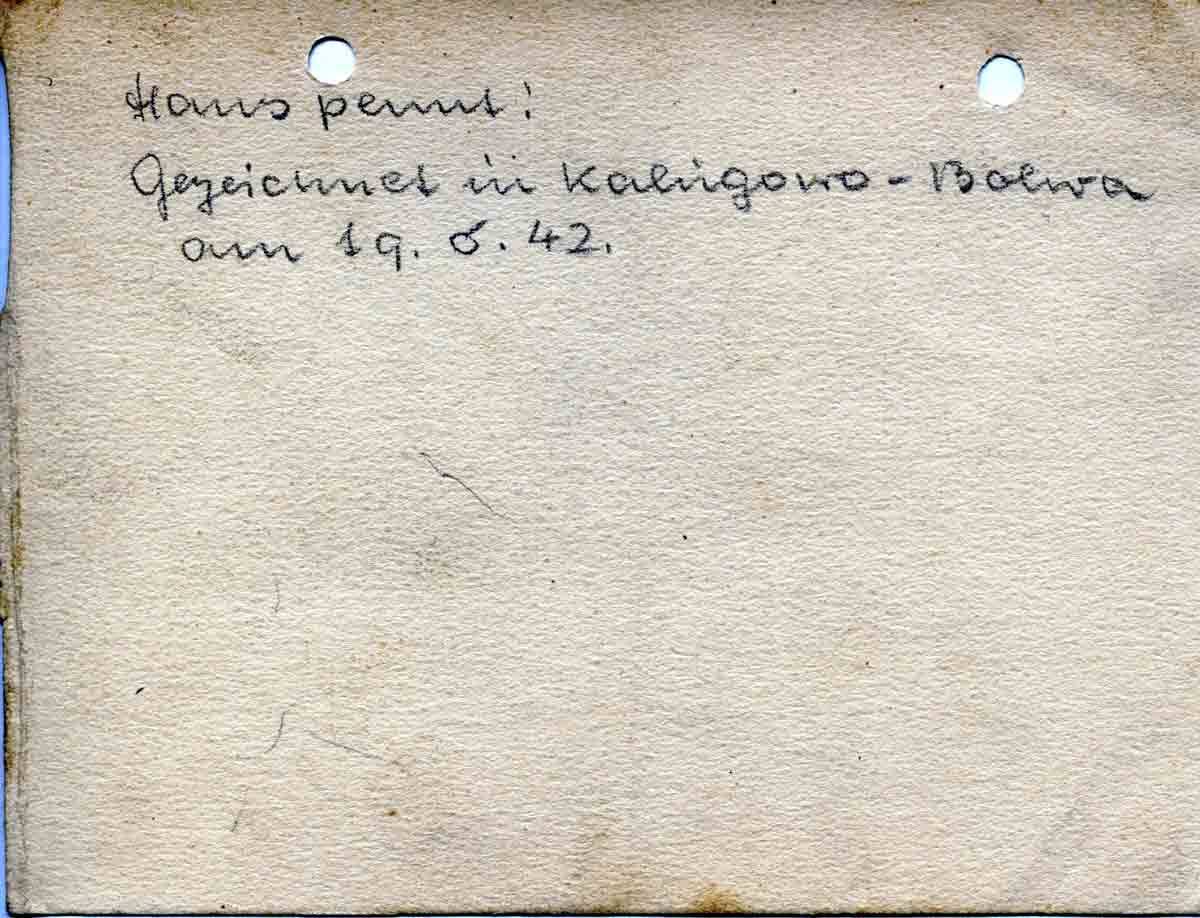 Hans pennt!
Gezeichnet in Kaligowo - Bolwa
am 19. 6. 42.